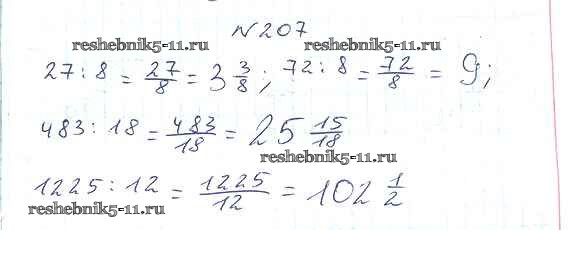 № 207
reshebnik5-11.ru reshebnik5-11.ru
27 : 8 = 27/8 = 3 3/8 ; 72 : 8 = 72/8 = 9 ;
483 : 18 = 483/18 = 25 15/18
reshebnik5-11.ru
1225 : 12 = 1225/12 = 102 1/2
reshebnik5-11.ru